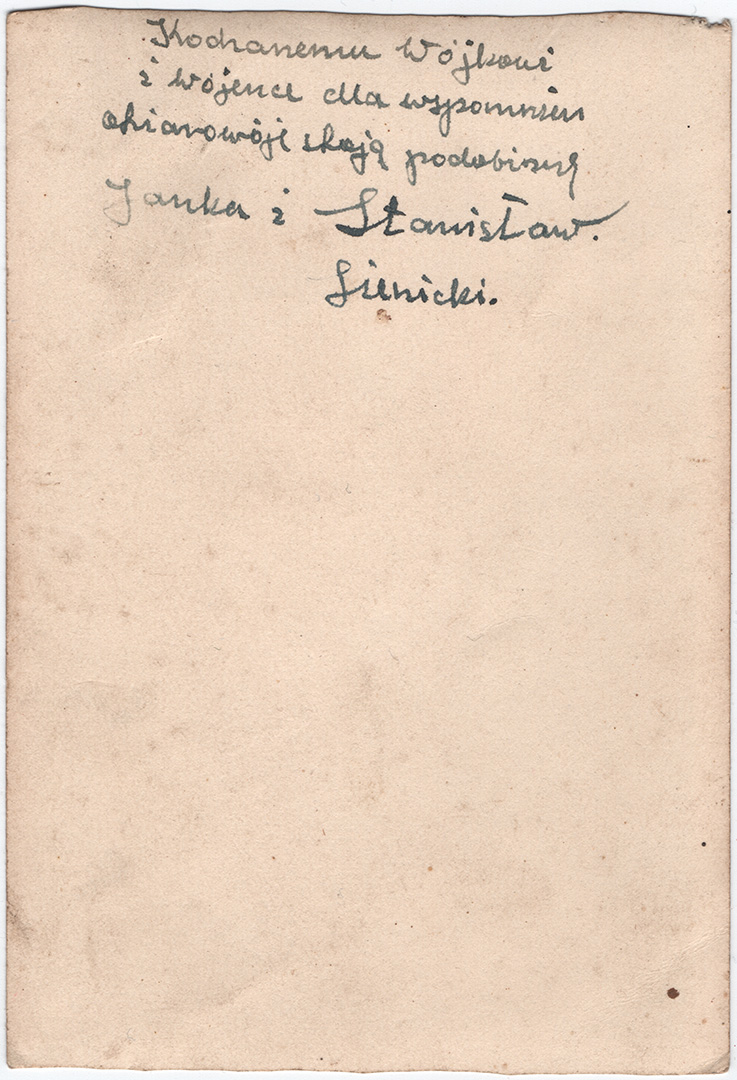 Kochanemu Wójkowi
i wójence dla wspomnien
ofiarowóję swoją podobiznę
Janka i Stanisław.
Sienicki.